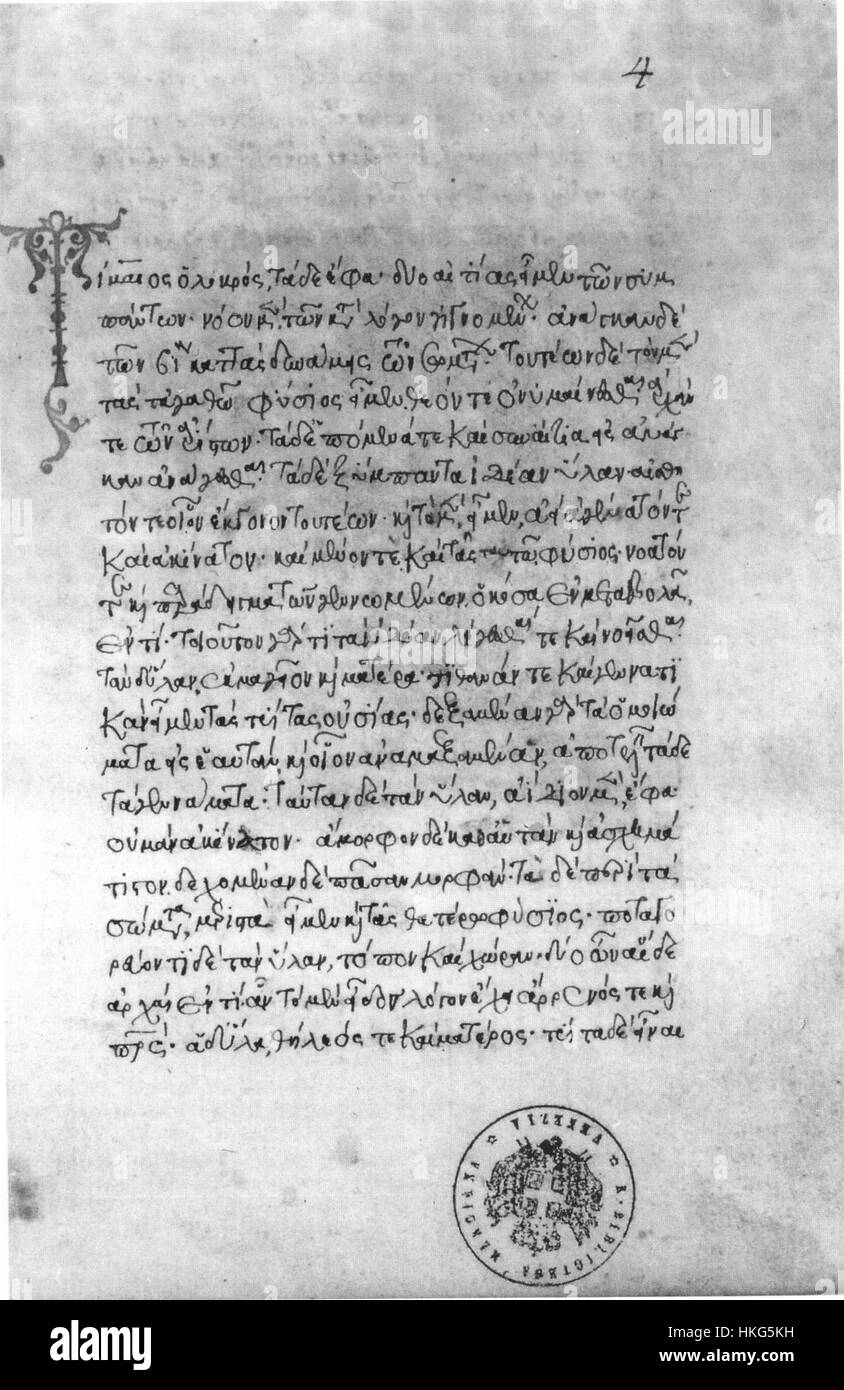 4
Τίμαιος ὁ λοκρός, τάδε ἔφα· δύο αἰτίας εἶμεν τῶν συμ
πάντων· νόον μέν, τῶν κατὰ λόγον γιγνομένων· ἀνάγκαν δὲ
τῶν βίᾳ καττὰς δυνάμεις τῶν σωμάτων· τουτέων δὲ τὸν μὲν
τᾶς τἀγαθῶ φύσιος εἶμεν θεόν τε ὀνυμαίνεσθαι ἀρχάν
τε τῶν ἀρίστων· τὰ δ' ἑπόμενά τε καὶ συναίτια ἐς ἀνάγ
καν ἀνάγεσθαι· τὰ δὲ ξύμπαντα ἰδέαν ὕλαν αἰσθη
τόν τε οἷον ἔκγονον τουτέων· καὶ τὸ μέν, εἶμεν ἀεὶ ἀγένατόν τε
καὶ ἀκίνατον· καὶ μένον τε καὶ τᾶς ταυτῶ φύσιος· νοατόν
τε καὶ παράδειγμα τῶν γεννωμένων, ὁκόσα ἐν μεταβολᾷ
ἐντί· τοιοῦτον γάρ τι τὰν ἰδέαν λέγεσθαί τε καὶ νοεῖσθαι
τὰν δ' ὕλαν, ἐκμαγεῖον καὶ ματέρα· τιθάναν τε καὶ γεννατι
κὰν εἶμεν τᾶς τρίτας οὐσίας· δεξαμέναν γὰρ τὰ ὁμοιώ
ματα ἐς ἑαυτὰν καὶ οἷον ἀναμαξαμέναν, ἀποτελεῖν τάδε
τὰ γεννάματα· ταύταν δὲ τὰν ὕλαν, ἀΐδιον μέν, ἔφα·
οὐ μὰν ἀκίνατον· ἄμορφον δὲ καθ' αὑτὰν καὶ ἀσχημά
τιστον· δεχομέναν δὲ πᾶσαν μορφάν· τὰν δὲ περὶ τὰ
σώματα, μεριστὰν εἶμεν καὶ τᾶς θατέρω φύσιος· ποταγο
ρεύοντι δὲ τὰν ὕλαν, τόπον καὶ χώραν· δύο ὦν αἵδε
ἀρχαὶ ἐντίαι ὧν τὸ μὲν εἶδος λόγον ἔχει ἄρρενός τε καὶ
πατρός· ἁ δ' ὕλα, θήλεός τε καὶ ματέρος· τρίτα δὲ εἶναι
R. BIBLIOTECA MARCIANA VENEZIA
alamy
Image ID: HKG5KH
www.alamy.com